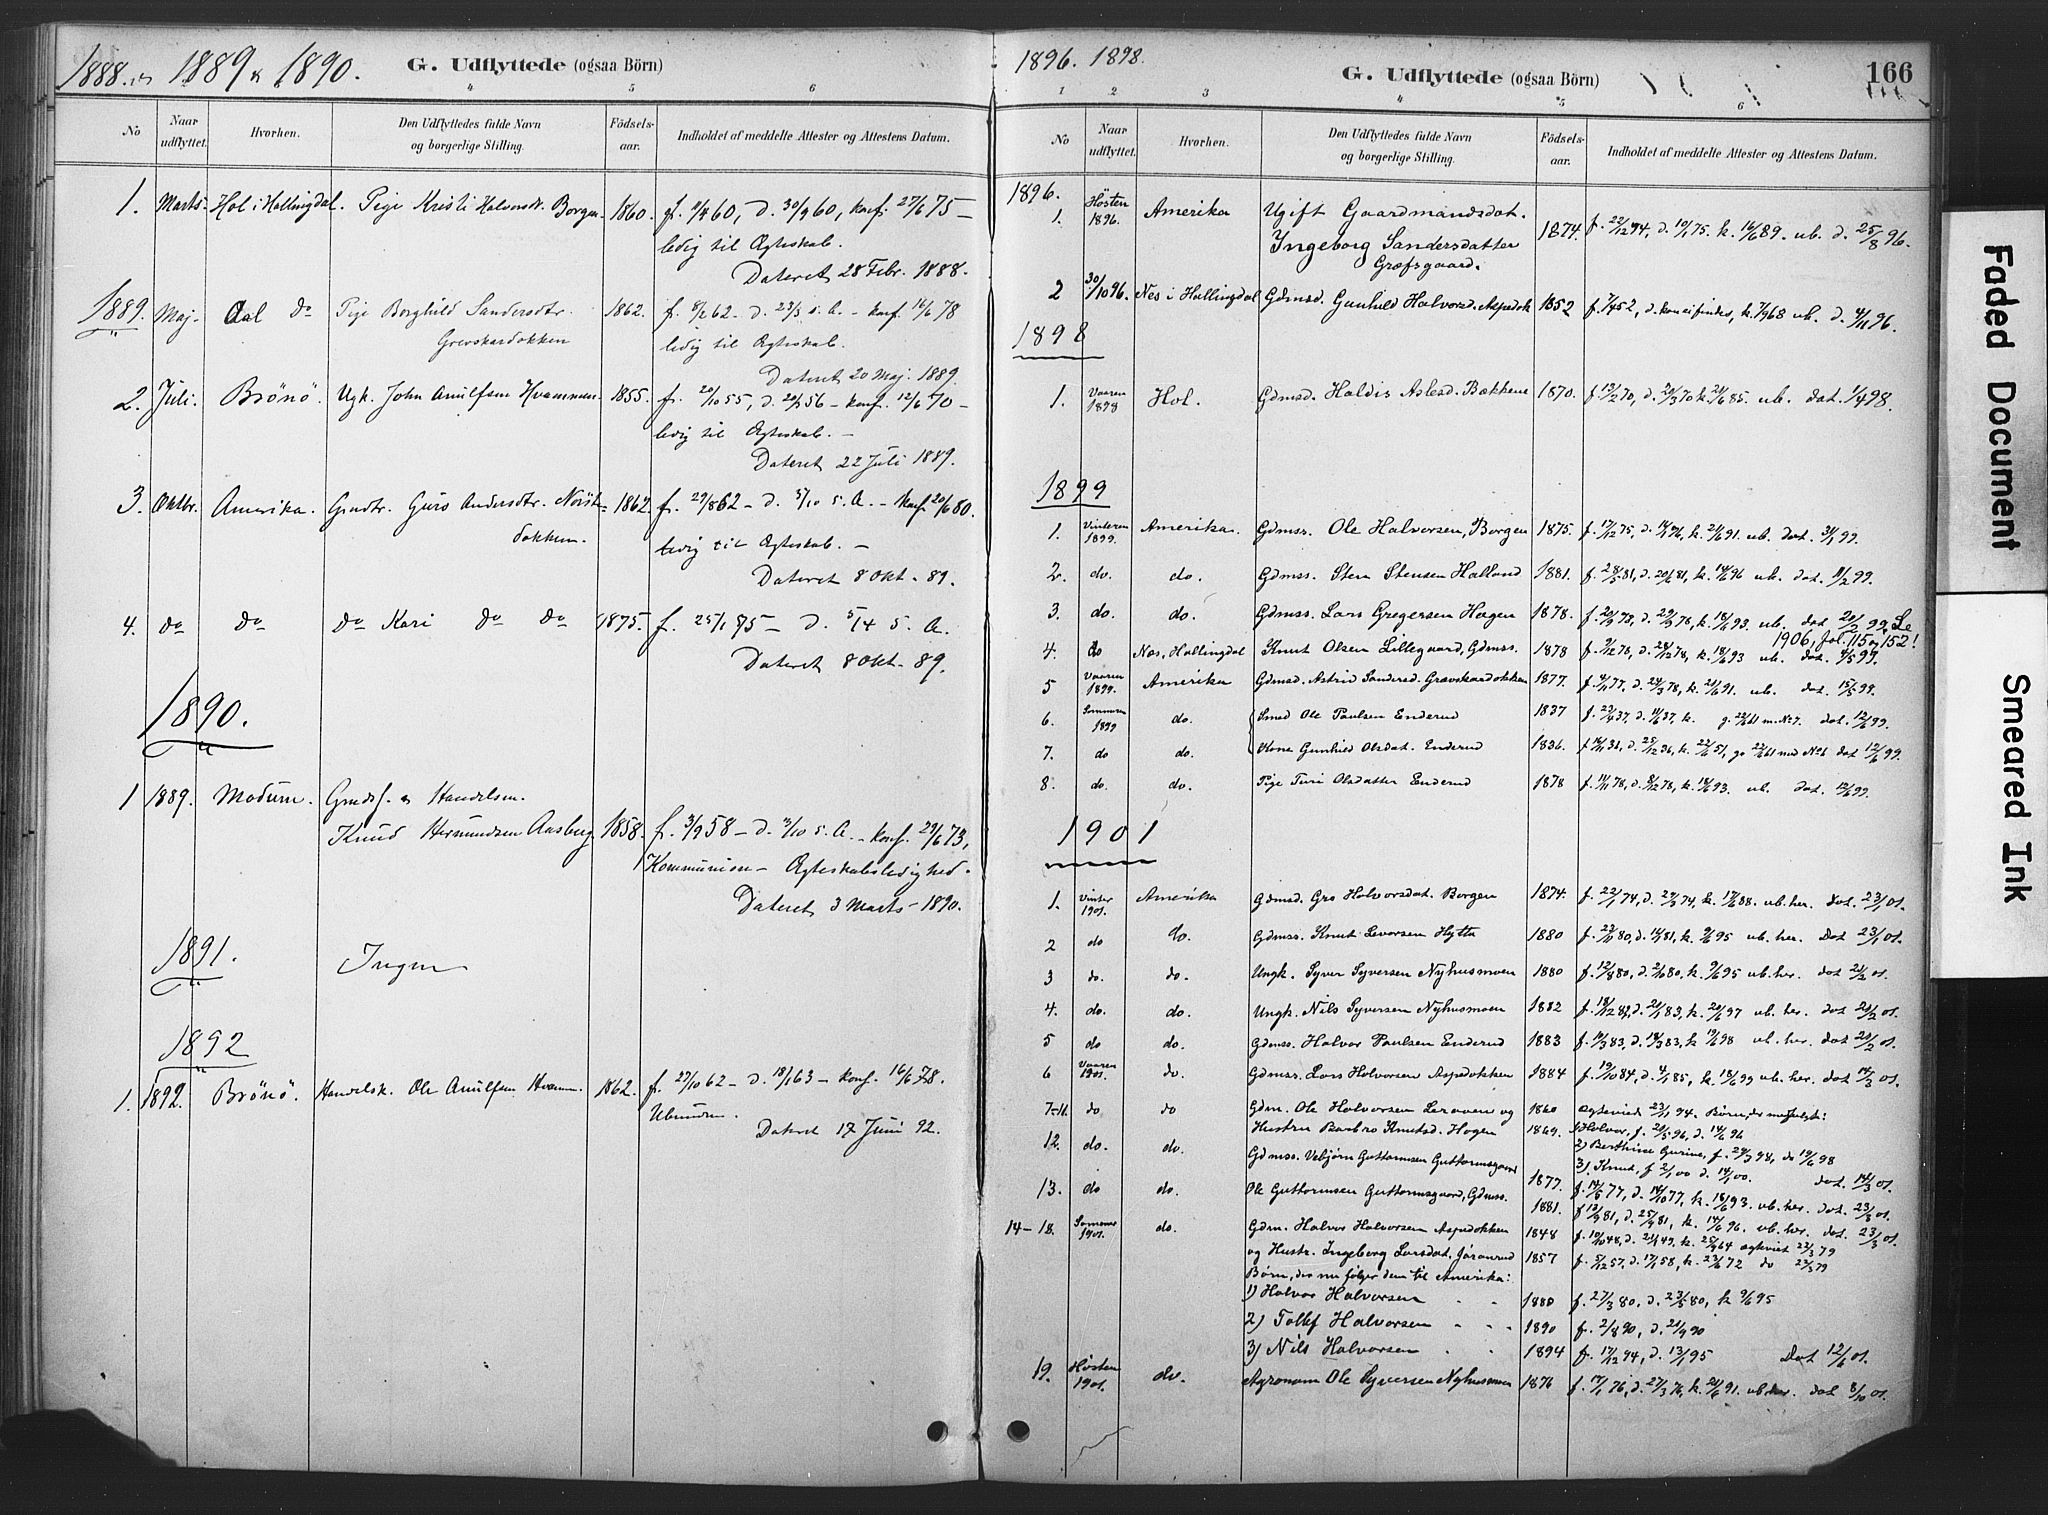 1888 og 1889 & 1890.
G. Udflyttede (ogsaa Börn)
4 5 6
No
Naar udflyttet.
Hvorhen.
Den Udflyttedes fulde Navn og borgerlige Stilling.
Födsels-aar.
Indholdet af meddelte Attester og Attestens Datum.
1. Marts. Hol i Hallingdal. Pige Kristi Halvorsdt. Borgen. 1860. f. 11/4 60, d. 30/9 60, konf. 27/6 75 –
ledig til Ægteskab.
Dateret 28 Febr. 1888.
1889. Maj. Aal do Pige Borghild Sandersdtr. 1862. f. 8/2 62 – d. 23/3 s. A. – konf. 16/6 78
Grevskardokken
ledig til Ægteskab.
Dateret 20 Maj. 1889.
2. Juli. Brönö. Ugk. John Arnulfsen Hvammen. 1855. f. 20/10 55, d. 20/1 56 – konf. 12/6 70 –
ledig til Ægteskab. –
Dateret 22 Juli 1889.
3. Oktbr. Amerika. Grmdtr. Guro Andersdtr. Norste- 1862. f. 29/8 62 – d. 5/10 s. A. – konf. 20/6 80.
dokken.
ledig til Ægteskab. –
Dateret 8 Okt. 89.
4. do do do Kari do do 1875. f. 25/1 75 – d. 5/4 s. A.
Dateret 8 Okt. 89.
1890.
1 1889. Modum. Grmds. og Handelsm.
Knud Hermundsen Aasberg. 1858. f. 3/9 58 – d. 3/10 s. A. – konf. 29/6 73,
Kommunion – Ægteskabsledighed.
Dateret 3 Marts 1890.
1891. Ingen
1892
1. 1892. Brönö. Handelsk. Ole Arnulfsen Hvamm. 1862. f. 27/10 62 – d. 18/1 63 – konf. 16/6 78.
Ubunden.
Dateret 17 Juni 92.
1896. 1898.
G. Udflyttede (ogsaa Börn)
166
1 2 3 4 5 6
No
Naar udflyttet.
Hvorhen.
Den Udflyttedes fulde Navn og borgerlige Stilling.
Födsels-aar.
Indholdet af meddelte Attester og Attestens Datum.
1896.
1. Høsten 1896. Amerika Ugift Gaardmandsdat.
Ingeborg Sandersdatter 1874. f. 22/12 94, d. 10/1 75. k. 16/6 89. ub. d. 25/8 96.
Græfsgaard.
2 30/10 96. Nes i Hallingdal Gdmsd. Gunhild Halvorsd. Aspedok 1852 f. 7/4 52, d. kan ei findes, k. 7/9 68 ub. d. 4/11 96.
1898
1. Vaaren 1898 Hol. Gdmsd. Haldis Aslesd. Bækkene 1870. f. 13/2 70, d. 20/3 70 k. 21/6 85. ub. dat. 1/4 98.
1899
1. Vinteren 1899. Amerika. Gdmss. Ole Halvorsen, Borgen 1875. f. 17/12 75, d. 14/1 76, k. 21/6 91. ub. dat. 31/1 99.
2. do. do. Gdmss. Sten Stensen Halland 1881. f. 28/5 81, d. 20/6 81, k. 14/6 96 ub. dat. 11/2 99.
3. do. do. Gdmss. Lars Gregersen Hagen 1878. f. 20/8 78, d. 29/9 78, k. 18/6 93. ub. dat 20/2 99. Se
1906, fol. 115 og 152!
4. do Nes, Hallingdal Knut Olsen Lillegaard, Gdmss. 1878 f. 9/12 78, d. 28/12 78, k. 18/6 93 ub. dat. 4/5 99.
5 Vaaren 1899. Amerika Gdmsd. Astrid Sandersd. Grævskardokken 1877. f. 4/11 77, d. 24/3 78, k. 21/6 91. ub. dat. 15/5 99.
6. Sommeren 1899 do. Smed Ole Paulsen Enderud 1837 f. 22/4 37, d. 14/5 37. k. g. 22/6 61 m. No 7. dat. 12/6 99.
7. do do. Kone Gunhild Olsdat. Enderud 1836. f. 16/11 36, d. 25/12 36, k. 22/6 51, gv. 22/6 61 med No 6 dat 12/6 99.
8. do. do. Pige Turi Olsdatter Enderud 1878 f. 14/11 78, d. 8/12 78, k. 18/6 93. ub. dat. 12/6 99.
1901
1. Vinter 1901. Amerika Gdmsd. Gro Halvorsdat. Borgen 1874. f. 22/1 74, d. 29/3 74, k. 17/6 88. ub. her. dat. 23/1 01.
2 do do. Gdmss. Knut Levorsen Hytta 1880 f. 23/10 80, d. 14/1 81, k. 9/6 95 ub. her. Dat 23/1 01.
3 do. do. Ungk. Syver Syversen Nyhusmoen 1880 f. 12/8 80, d. 2/10 80, k. 9/6 95 ub. her. dat 20/2 01.
4. do. do. Ungk. Nils Syversen Nyhusmoen 1882 f. 18/12 82, d. 21/1 83, k. 20/6 97 ub. her. dat 20/2 01.
5 do do. Gdmss. Halvor Paulsen Enderud 1883 f. 10/3 83, d. 18/3 83, k. 19/6 98 ub. her. dat 20/2 01.
6 Vaaren 1901. do. Gdmss. Lars Halvorsen Aspedokken 1884 f. 19/10 84, d. 4/1 85, k. 18/6 99 ub. her. dat 14/3 01.
7–11. do do Gdm. Ole Halvorsen Leraven og 1860 Ægteviet 23/11 94. Børn, der medfulgte:
Hustru Barbro Knutsd. Hagen 1869. 1) Halvor, f. 20/5 96, d. 14/6 96
2) Berthine Gurine, f. 29/3 98, do 19/6 98
3) Knut, f. 2/1 00 d. 14/1 00. dat. 14/3 01.
12. do. do. Gdmss. Vebjørn Guttormsen Guttormsgaard 1877. f. 14/6 77, d. 14/10 77, k. 18/6 93. ub. her. dat. 23/3 01.
13. do do. Ole Guttormsen Guttormsgaard, Gdmss. 1881. f. 12/9 81, d. 25/9 81, k. 14/6 96. ub. her. dat 23/3 01.
14–18. Sommer 1901. do. Gdm. Halvor Halvorsen Aspedokken 1848 f. 19/10 48, d. 21/1 49, k. 25/9 64 ægteviet 23/3 79
og Hustr. Ingeborg Larsdat. Jøranrud 1857 f. 5/12 57, d. 17/1 58, k. 23/6 72 do 23/3 79
Børn, der nu følger dem til Amerika:
1) Halvor Halvorsen 1880 f. 27/3 80, d. 23/5 80, k 9/6 95
2) Tollef Halvorsen 1890 f. 2/8 90, d. 21/9 90
3) Nils Halvorsen 1894 f. 17/12 94, d. 13/1 95 Dat 12/6 01.
19. Høsten 1901. do. Agronom Ole Syversen Nyhusmoen 1876 f. 17/1 76, d. 27/3 76, k. 21/6 91. ub. her. dat 8/10 01.
Faded Document
Smeared Ink